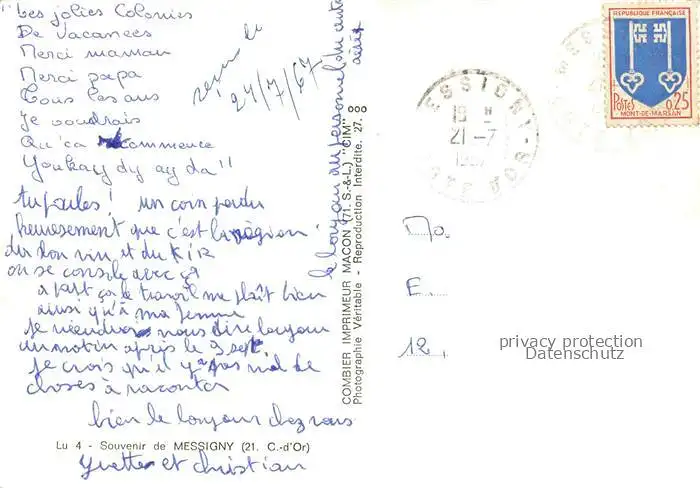 Les jolies Colonies
De Vacances
Merci maman
Merci papa
Tous les ans
Je voudrais
Qu'ça recommence
Youkaydy ay da"
tu parles! un coin perdu
heureusement que c'est la région
du bon vin et du Kir
on se console avec ça
à part ça le travail me plaît bien
ainsi qu'à ma femme
je viendrai vous dire bonjour
un matin après le 9 sept.
je crois qu'il y a pas mal de
choses à raconter
bien le bonjour chez vous
Yvette et Christian
Lu 4 - Souvenir de MESSIGNY (21. C.-d'Or)
24/7/67
le bonjour au personnel du
COMBIER IMPRIMEUR MACON (71. S.-&-L.) "CIM"
Photographie Véritable - Reproduction Interdite. 27.
18 H
21-7
REPUBLIQUE FRANÇAISE
POSTES 0,25
MONT-DE-MARSAN
Ma.
E.
12,
privacy protection
Datenschutz